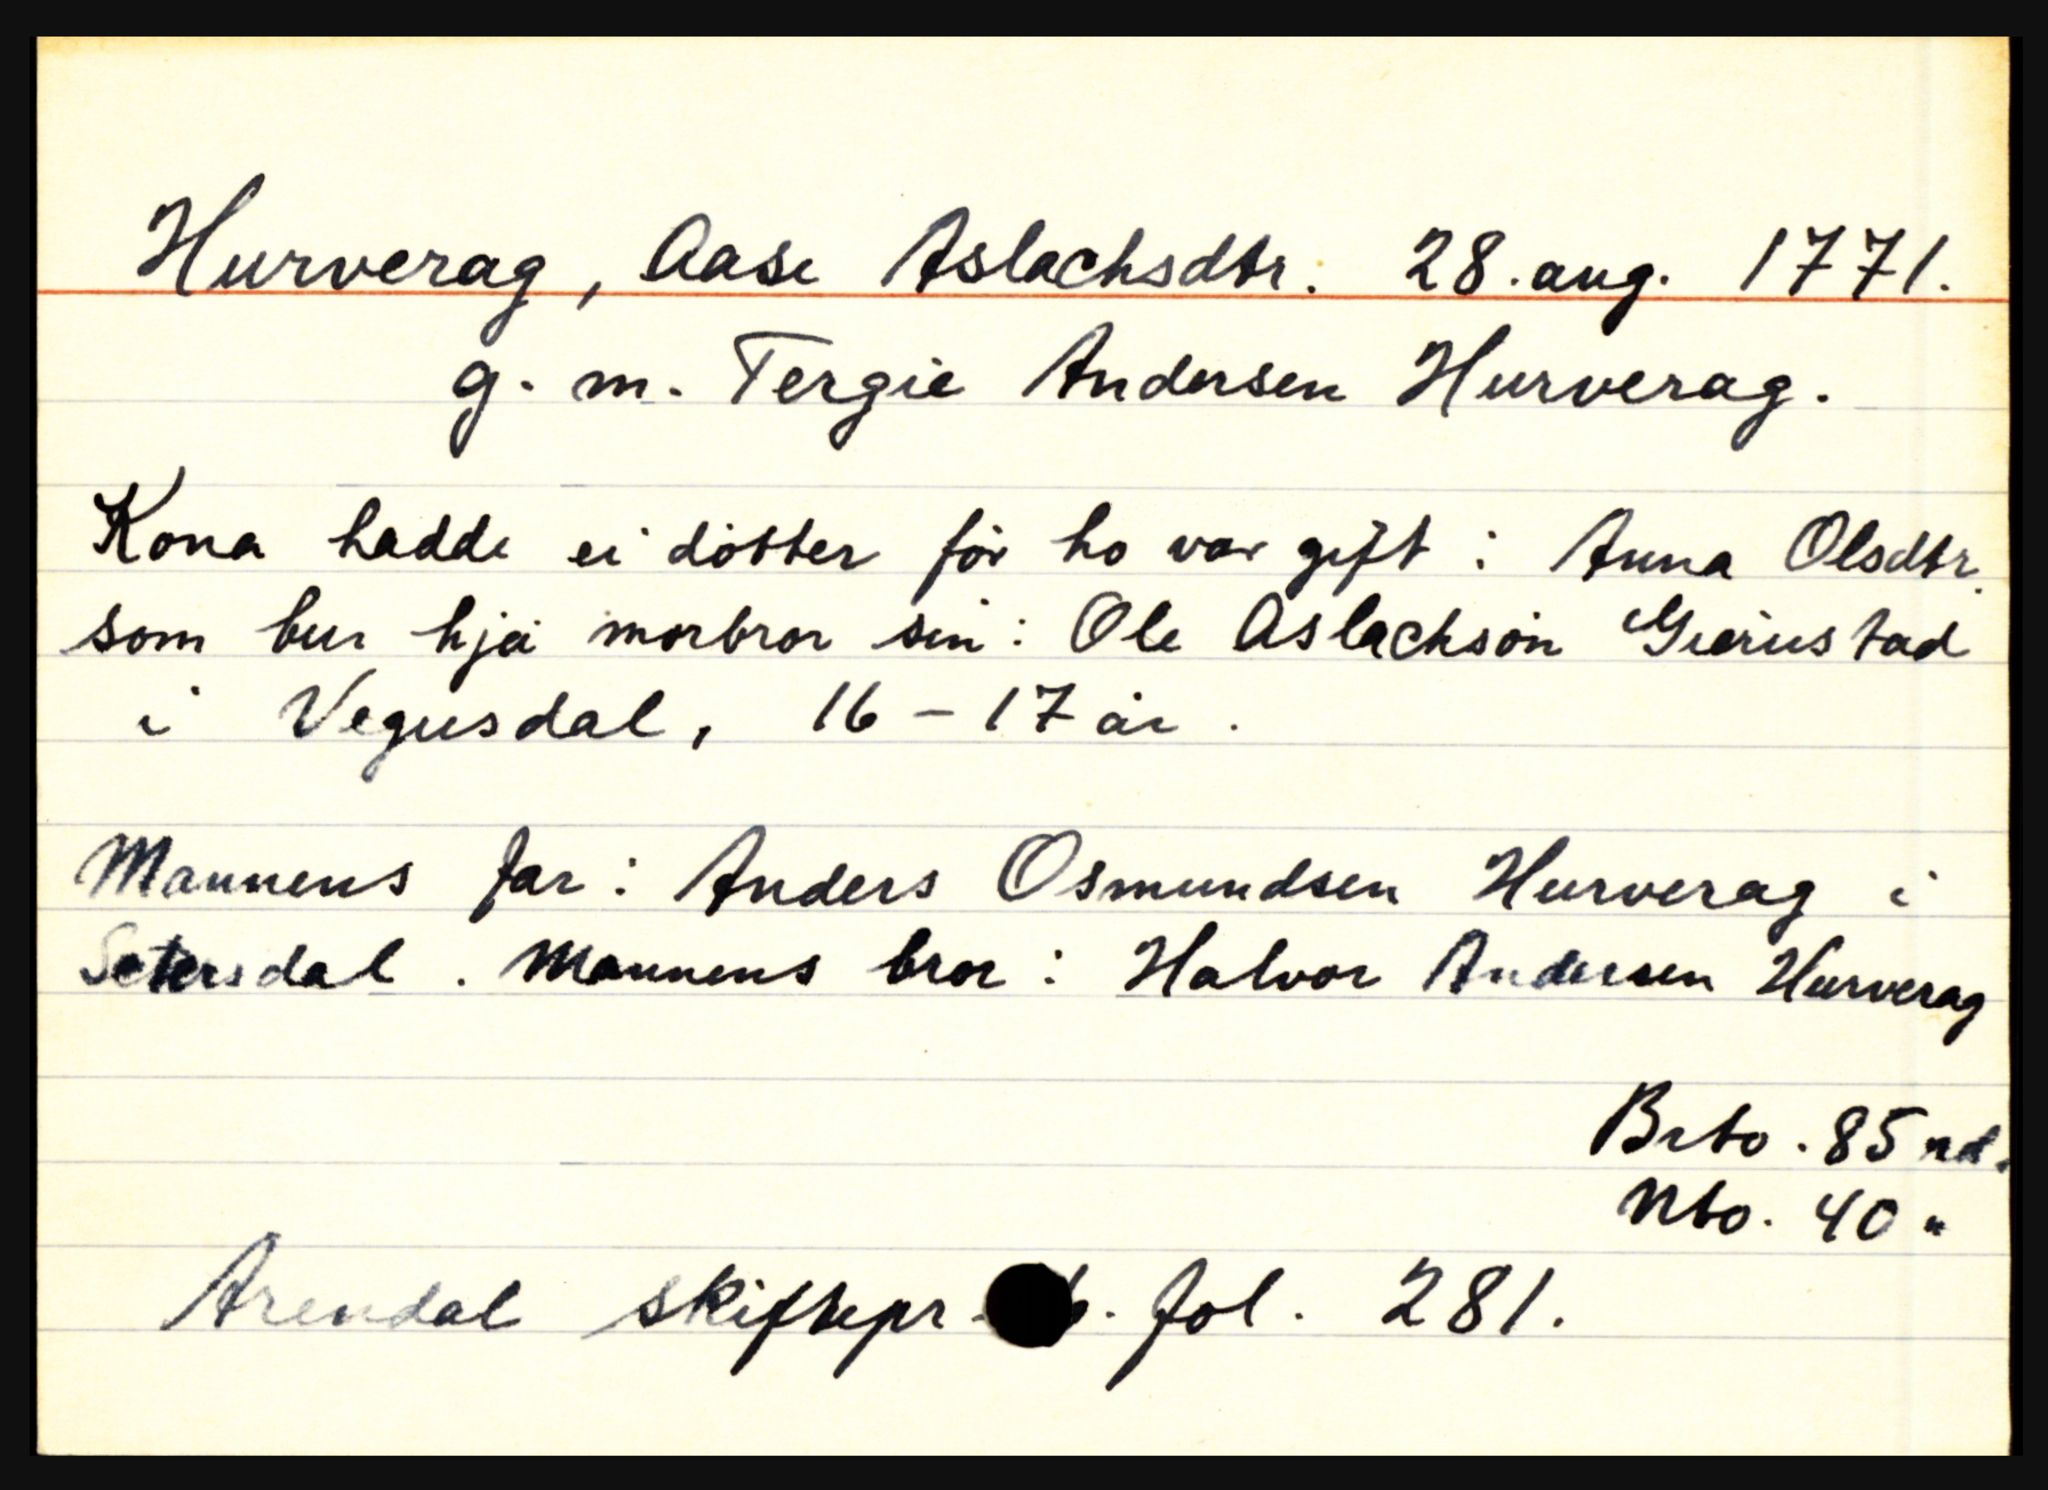 Hurverag, Aase Aslachsdtr. 28. aug. 1771.
g. m. Tergie Andersen Hurverag.
Kona hadde ei dotter før ho var gift: Anna Olsdtr.
som bur hjå morbror sin: Ole Aslachsøn
i Vegusdal, 16-17 år.
Mannens far: Anders Osmundsen Hurverag i
Setersdal. Mannens bror: Halvor Andersen Hurverag
Brto. 85 rd.
Nto. 40 "
Arendal skiftepr. fol. 281.